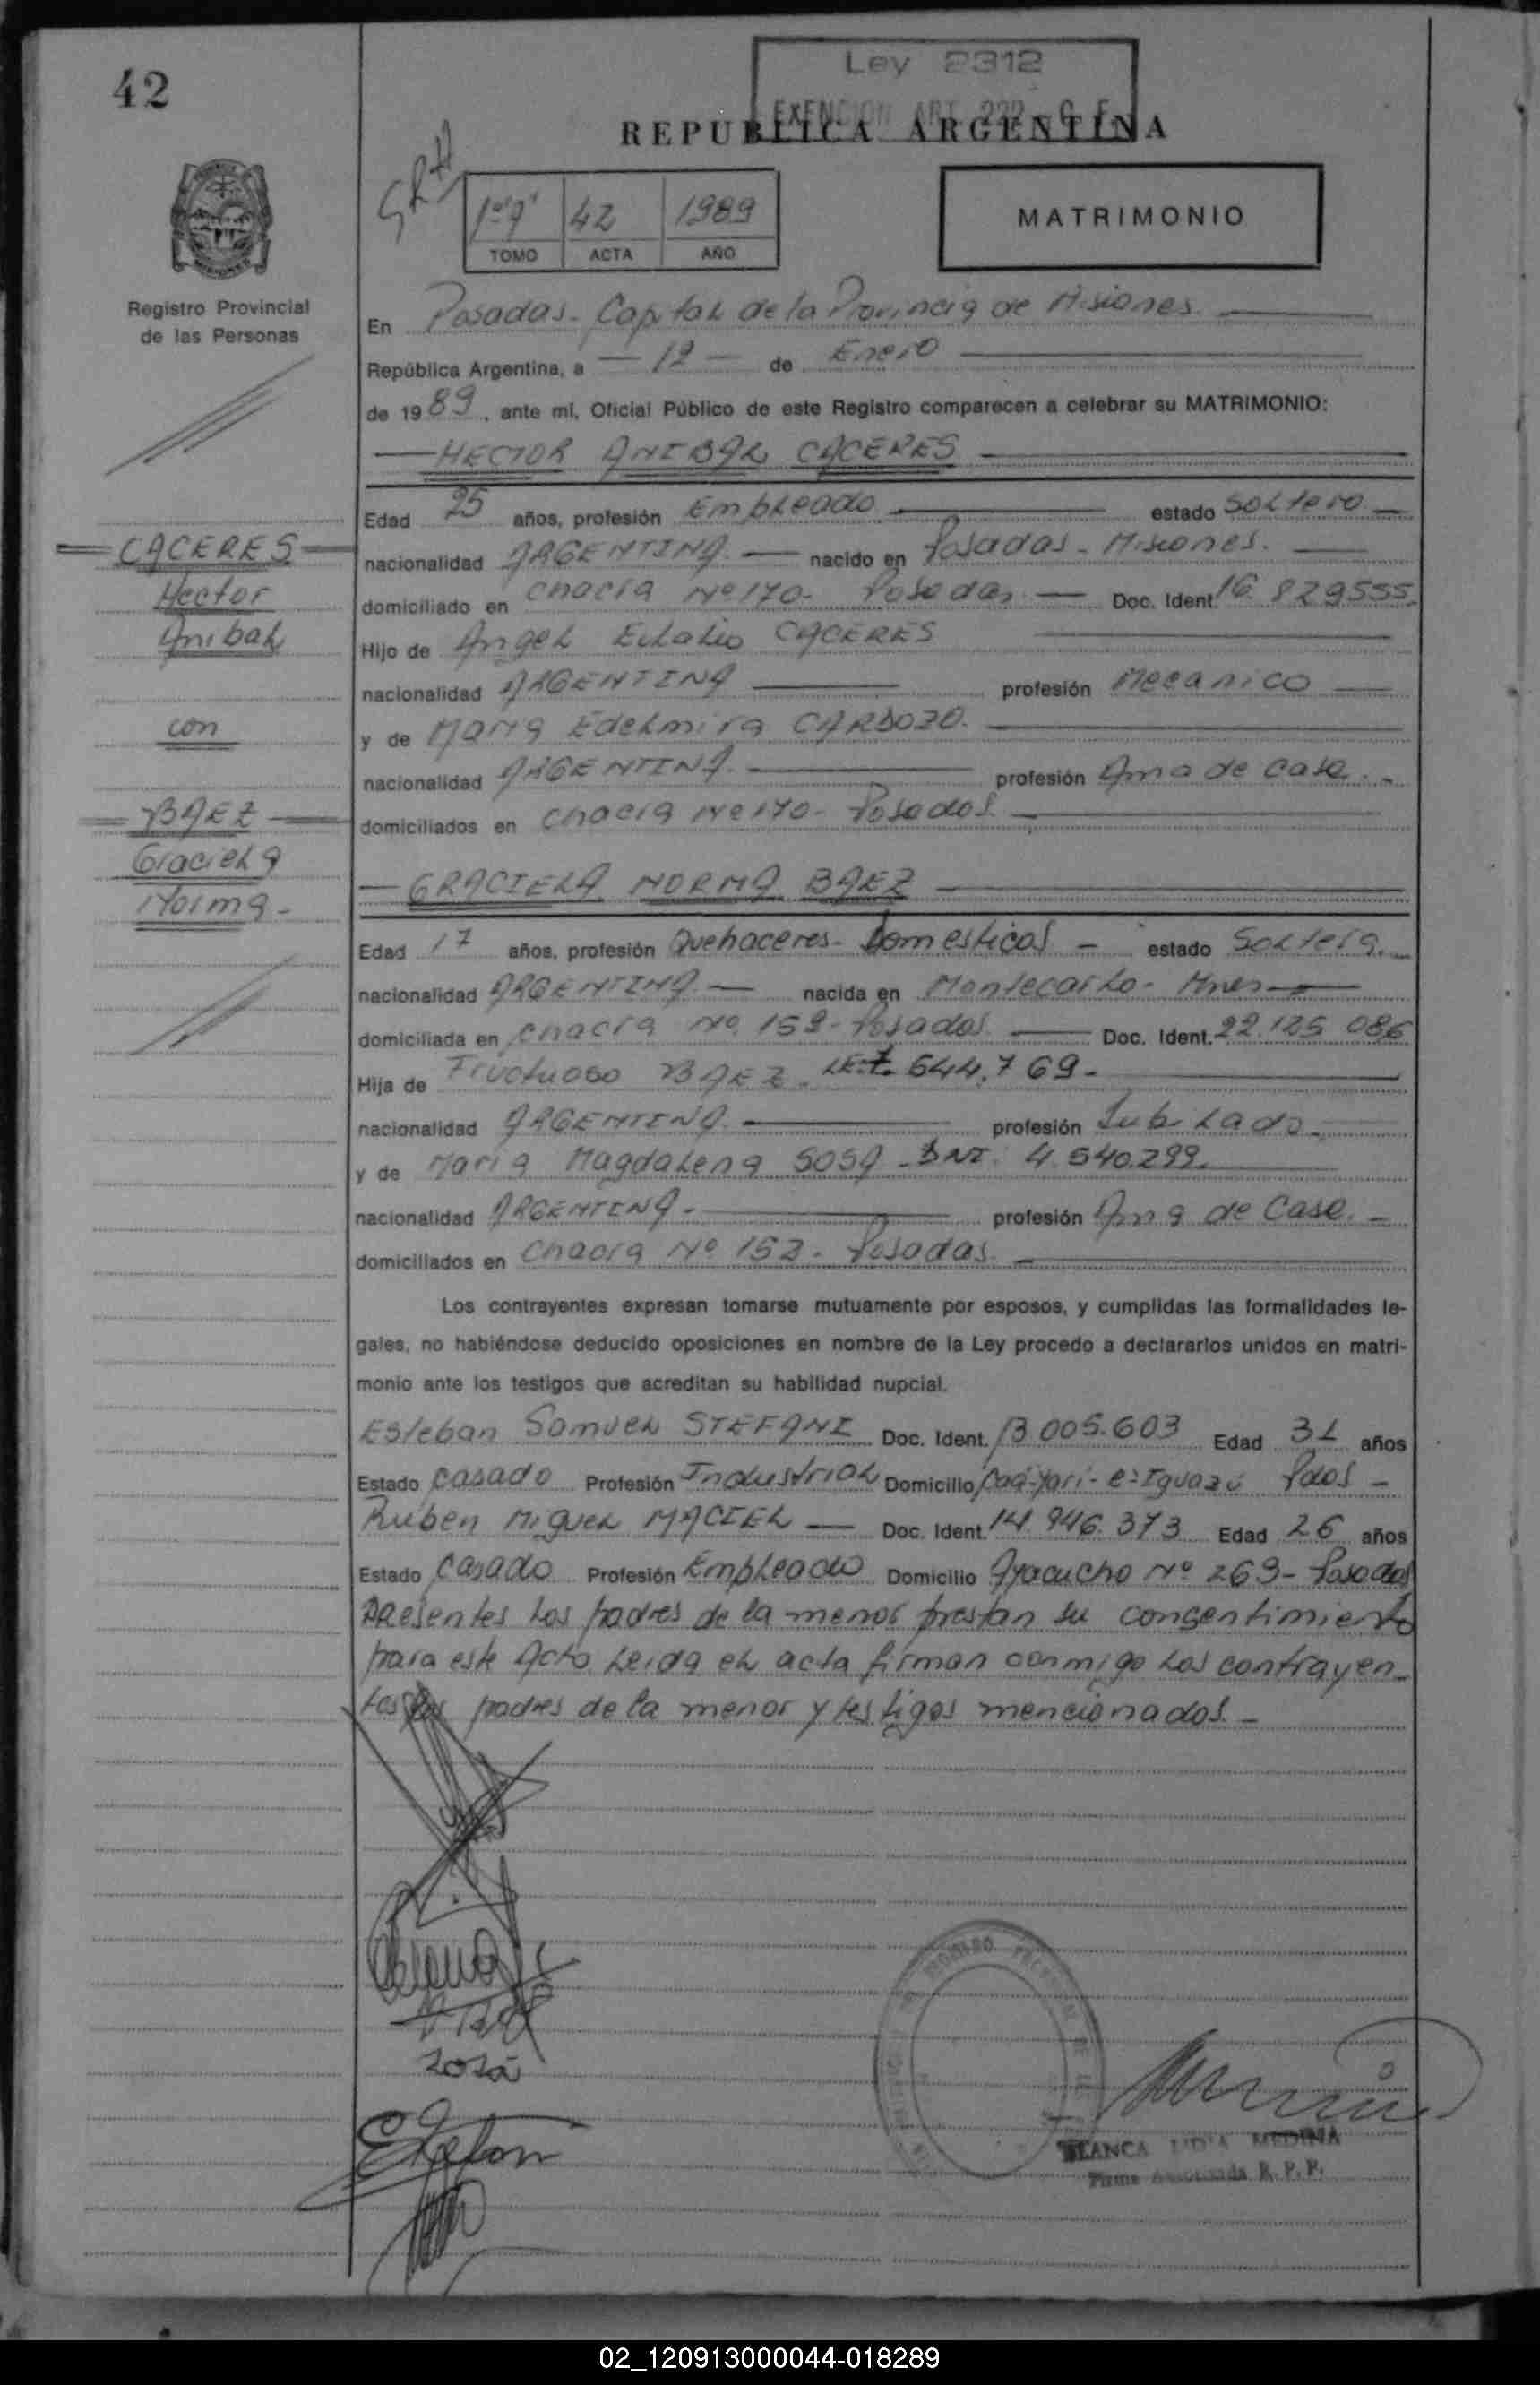 42
Ley 2312
EXENCION ART. 222 - C. F.
REPUBLICA ARGENTINA
1989
42
TOMO ACTA AÑO
MATRIMONIO
Registro Provincial
de las Personas
En Posadas - Capital de la Provincia de Misiones
República Argentina, a - 12 - de Enero
de 1989, ante mí, Oficial Público de este Registro comparecen a celebrar su MATRIMONIO:
HECTOR ANIBAL CACERES
Edad 25 años, profesión Empleado estado Soltero
CACERES
nacionalidad ARGENTINA nacido en Posadas - Misiones.
Hector
domiciliado en chacra Nº 170 - Posadas Doc. Ident. 16.829555.
Anibal
Hijo de Angel Eulalio CACERES
nacionalidad ARGENTINA profesión Mecanico
con
y de Maria Edelmira CARDOZO.
nacionalidad ARGENTINA profesión Ama de casa.
BAEZ
domiciliados en chacra Nº 170 - Posadas
Graciela
GRACIELA NORMA BAEZ
Norma -
Edad 17 años, profesión Quehaceres - Domesticos - estado Soltera.
nacionalidad ARGENTINA nacida en Montecarlo - Mnes
domiciliada en chacra Nº 152 - Posadas Doc. Ident. 22.125.086
Hija de Fructuoso BAEZ. LE. 7.544.769 -
nacionalidad ARGENTINA profesión Jubilado
y de Maria Magdalena SOSA - DNI. 4.540.299.
nacionalidad ARGENTINA - profesión Ama de Casa. -
domiciliados en Chacra Nº 152 - Posadas.
Los contrayentes expresan tomarse mutuamente por esposos, y cumplidas las formalidades le-
gales, no habiéndose deducido oposiciones en nombre de la Ley procedo a declararlos unidos en matri-
monio ante los testigos que acreditan su habilidad nupcial.
Esteban Samuel STEFANI Doc. Ident. 13.005.603 Edad 31 años
Estado casado Profesión Industrial Domicilio e: Iguazú Pdas -
Ruben Miguel MACIEL Doc. Ident. 14.946.373 Edad 26 años
Estado casado Profesión Empleado Domicilio Ayacucho Nº 269 - Posadas
Presentes los padres de la menor prestan su consentimiento
para este Acto. Leida el acta firman conmigo los contrayen-
tes los padres de la menor y testigos mencionados. -
sosa
BLANCA LIDIA MEDINA
Firma Autorizada R. P. P.
02_120913000044-018289